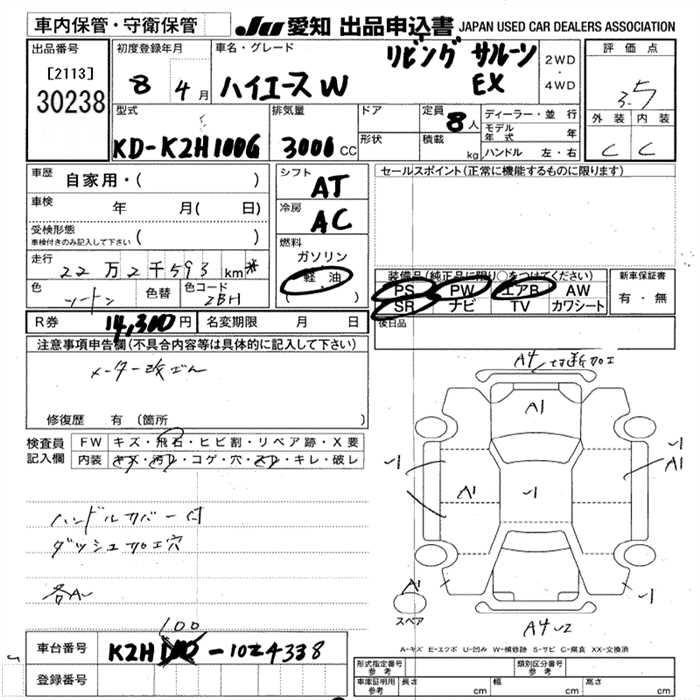 車内保管・守衛保管
JU 愛知 出品申込書 JAPAN USED CAR DEALERS ASSOCIATION
出品番号
[2113]
30238
初度登録年月
8年 4月
車名・グレード
ハイエースW
リビング サルーン
EX
2WD
・
4WD
評価点
3.5
外装 内装
C C
型式
KD-KZH100G
排気量
3000CC
ドア
形状
定員
8人
積載
kg
ディーラー・並行
モデル年式 年
ハンドル 左・右
車歴
自家用・( )
車検
年 月( 日)
受検形態
車検付きのみ記入して下さい ( )
走行
22万2千593km*
色
ツートン
色替
色コード
2BH
シフト
AT
冷房
AC
燃料
ガソリン
軽油
( )
R券 14,300円
名変期限 月 日
セールスポイント(正常に機能するものに限ります)
装備品(純正品に限り○をつけてください)
PS PW エアB AW
SR ナビ TV カワシート
新車保証書
有・無
後日品
注意事項申告欄(不具合内容等は具体的に記入して下さい)
メーター改ざん
修復歴 有 (箇所 )
検査員
記入欄
FW キズ・飛石・ヒビ割・リペア跡・X要
内装 キズ・汚れ・コゲ・穴・スレ・キレ・破レ
ハンドルカバー付
ダッシュ加工穴
各A〜
A4
A1
A1
A1
A1
スペア
A4
A-キズ E-エクボ U-凹み W-補修跡 S-サビ C-腐食 XX-交換済
車台番号
100
KZH -1024338
登録番号
形式指定番号
参考
類別区分番号
参考
車庫証明用
参考
長さ cm
幅 cm
高さ cm